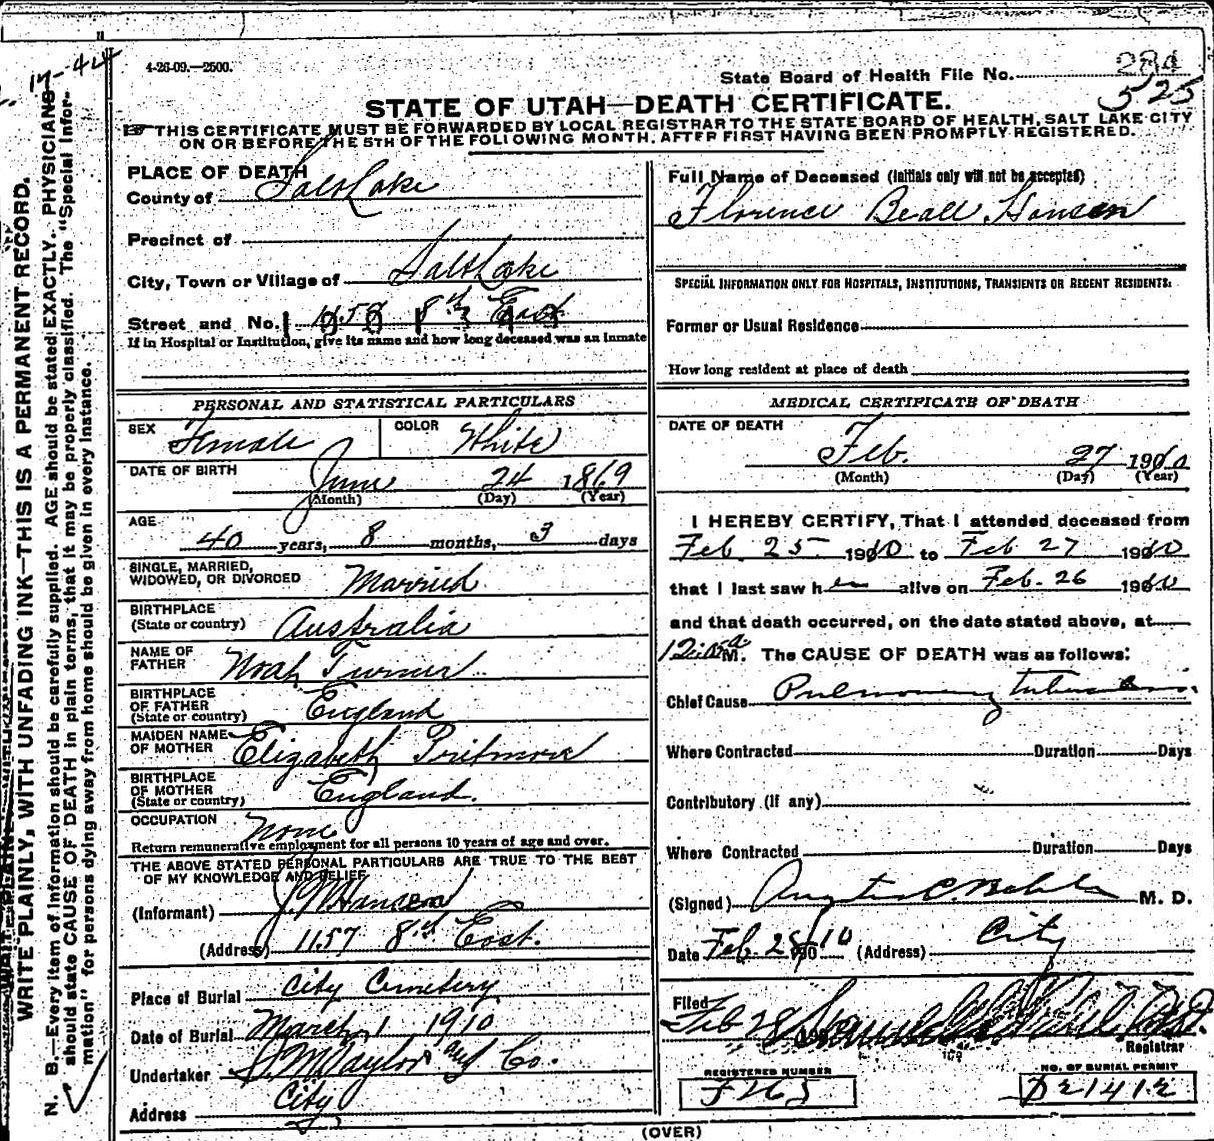 17-44
4-26-09.—2500.
State Board of Health File No. 284
525
STATE OF UTAH—DEATH CERTIFICATE.
THIS CERTIFICATE MUST BE FORWARDED BY LOCAL REGISTRAR TO THE STATE BOARD OF HEALTH, SALT LAKE CITY
ON OR BEFORE THE 5TH OF THE FOLLOWING MONTH, AFTER FIRST HAVING BEEN PROMPTLY REGISTERED.
WRITE PLAINLY, WITH UNFADING INK—THIS IS A PERMANENT RECORD.
N. B.—Every item of information should be carefully supplied. AGE should be stated EXACTLY. PHYSICIANS
should state CAUSE OF DEATH in plain terms, that it may be properly classified. The "Special Infor-
mation" for persons dying away from home should be given in every instance.
PLACE OF DEATH
County of Salt Lake
Precinct of
City, Town or Village of Salt Lake
Street and No. 8th East
If in Hospital or Institution, give its name and how long deceased was an inmate
PERSONAL AND STATISTICAL PARTICULARS
SEX Female COLOR White
DATE OF BIRTH June 24 1869
(Month) (Day) (Year)
AGE
40 years, 8 months, 3 days
SINGLE, MARRIED,
WIDOWED, OR DIVORCED Married
BIRTHPLACE
(State or country) Australia
NAME OF
FATHER Noah Turner
BIRTHPLACE
OF FATHER
(State or country) England
MAIDEN NAME
OF MOTHER Elizabeth Pritmore
BIRTHPLACE
OF MOTHER
(State or country) England.
OCCUPATION None
Return remunerative employment for all persons 10 years of age and over.
THE ABOVE STATED PERSONAL PARTICULARS ARE TRUE TO THE BEST
OF MY KNOWLEDGE AND BELIEF
(Informant) J. M Hansen
(Address) 1157 8th East.
Place of Burial City Cemetery
Date of Burial March 1 1910
Undertaker S. M Taylor and Co.
Address City
Full Name of Deceased (initials only will not be accepted)
Florence Beall Hansen
SPECIAL INFORMATION ONLY FOR HOSPITALS, INSTITUTIONS, TRANSIENTS OR RECENT RESIDENTS:
Former or Usual Residence
How long resident at place of death
MEDICAL CERTIFICATE OF DEATH
DATE OF DEATH
Feb. 27 1910
(Month) (Day) (Year)
I HEREBY CERTIFY, That I attended deceased from
Feb 25 1910 to Feb 27 1910
that I last saw her alive on Feb. 26 1910
and that death occurred, on the date stated above, at
M. The CAUSE OF DEATH was as follows:
Chief Cause Pulmonary tuberculosis.
Where Contracted Duration Days
Contributory (If any)
Where Contracted Duration Days
(Signed) M. D.
Date Feb. 28/10 190 (Address) City
Filed
Feb 28
Registrar
REGISTERED NUMBER
F265
NO. OF BURIAL PERMIT
D21412
(OVER)